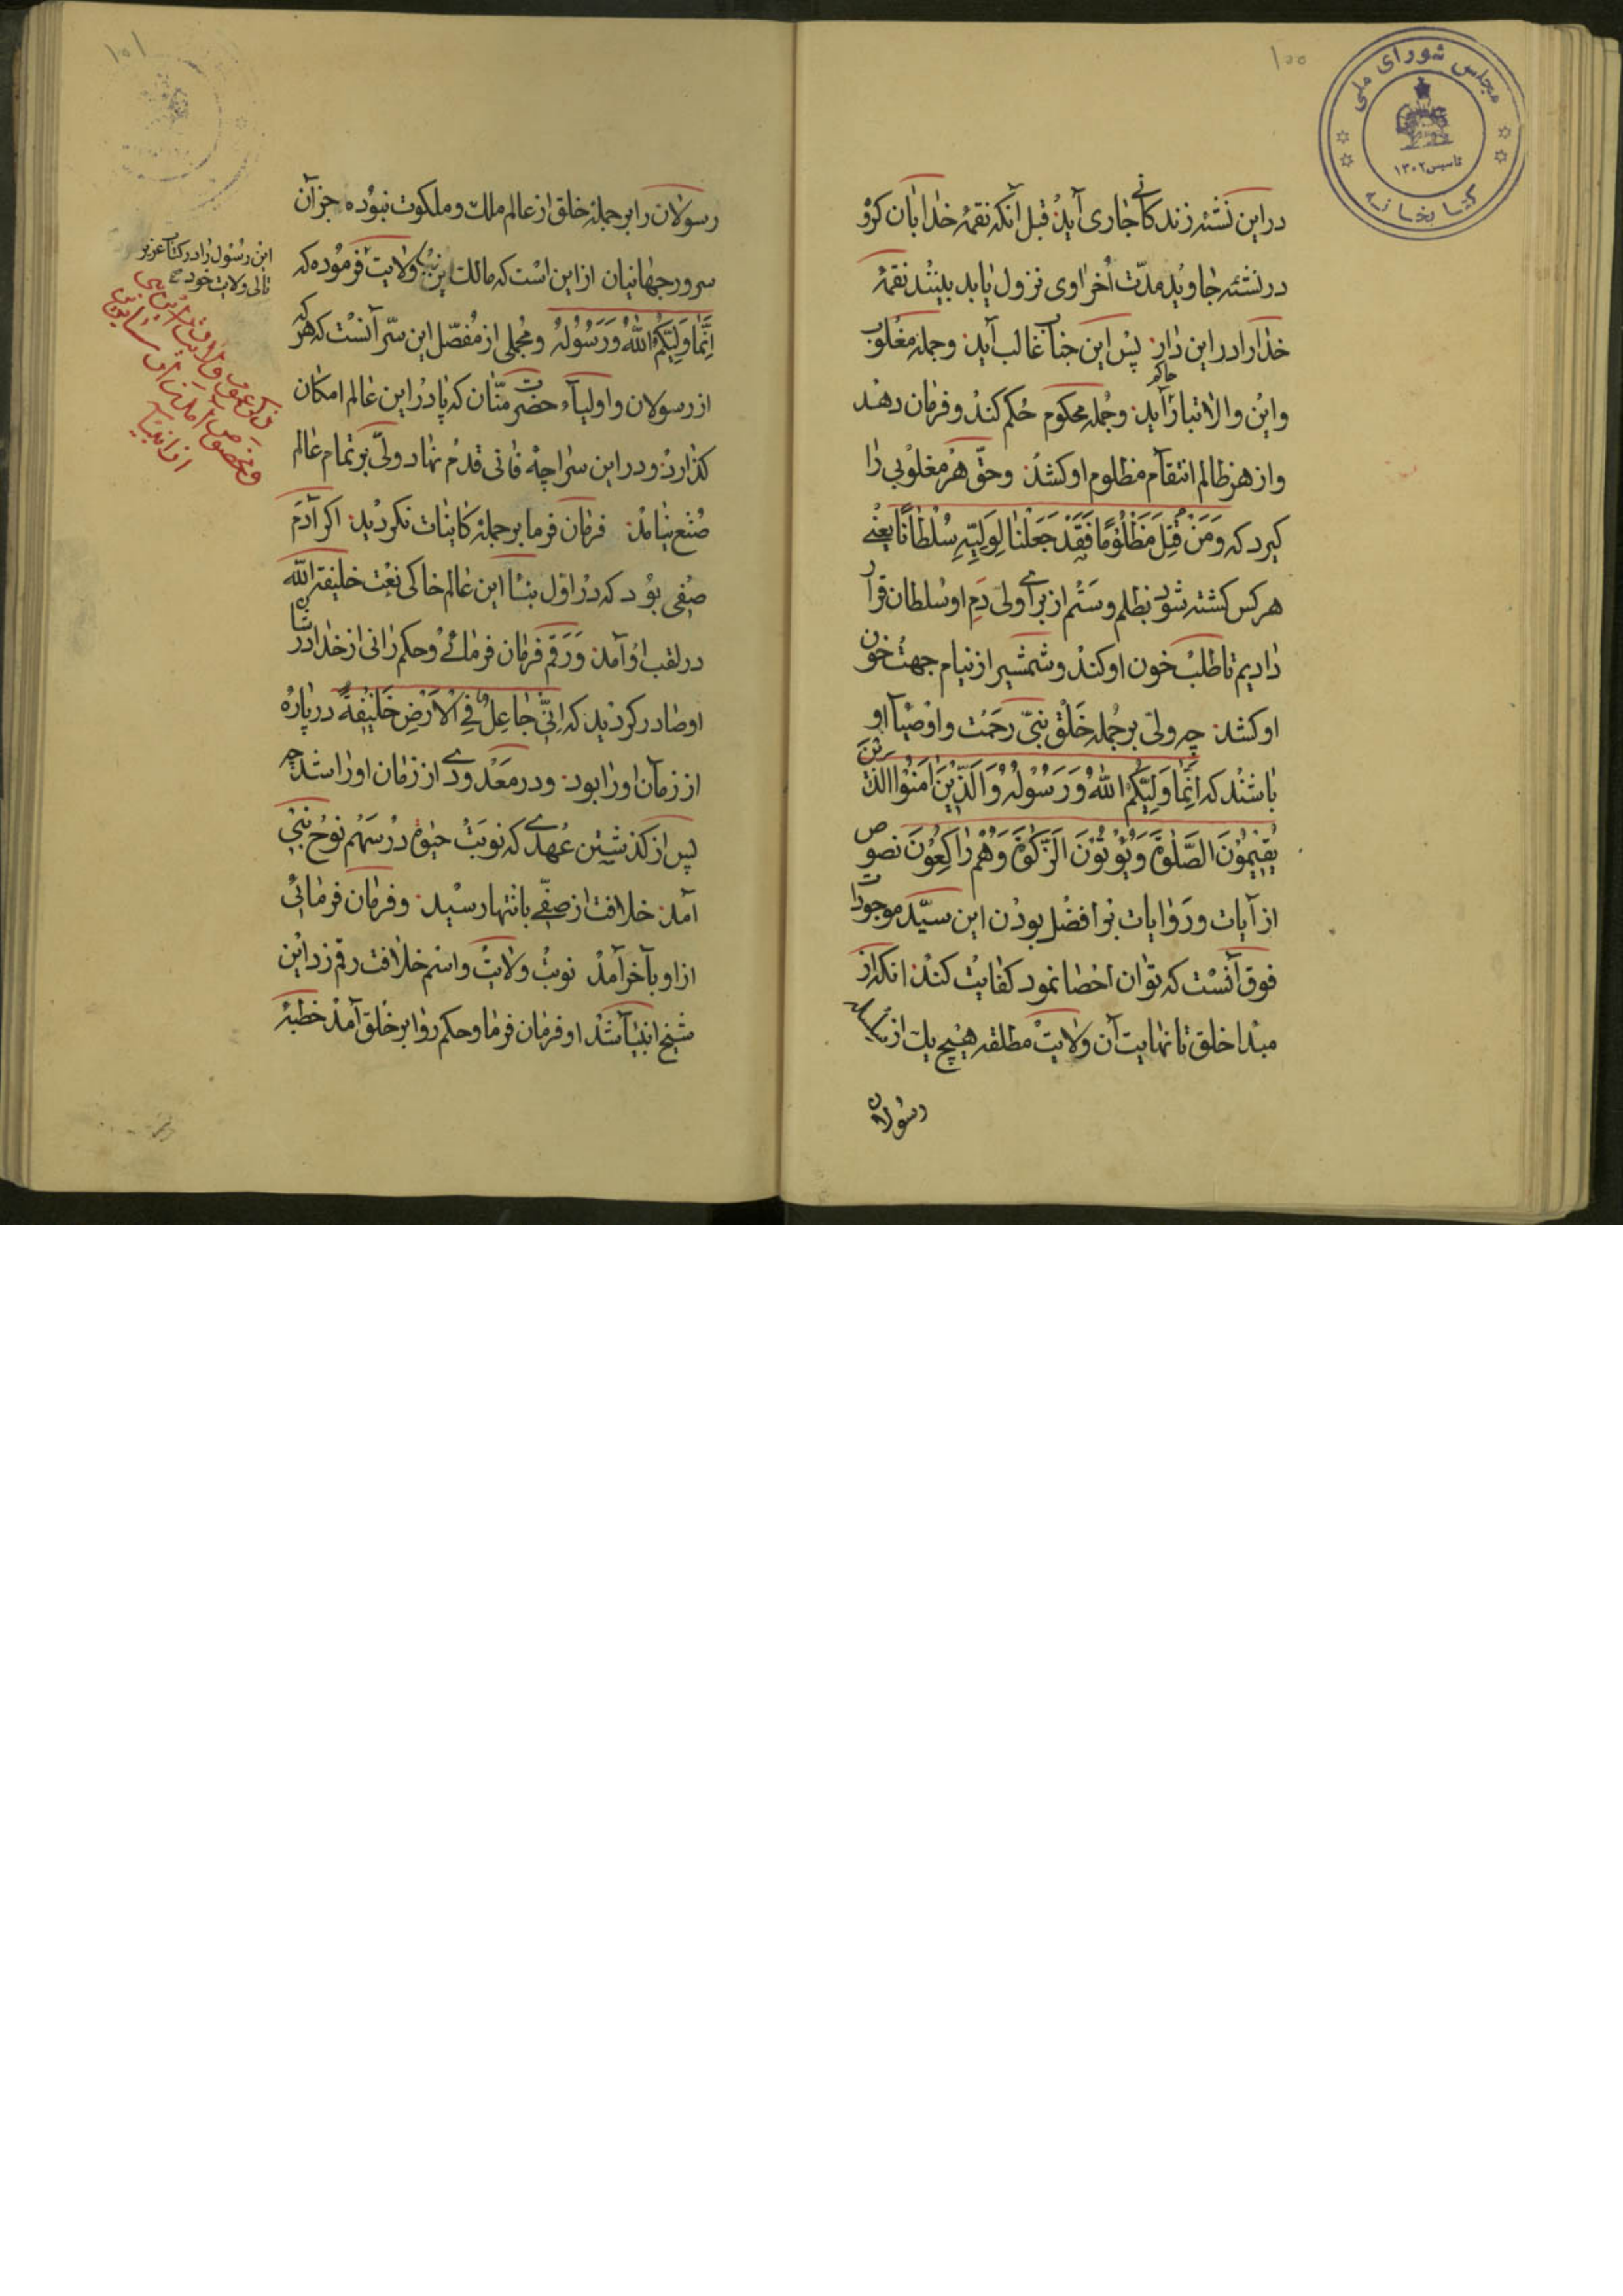 ۱۰۰
مجلس شورای ملی
تاسیس ۱۳۰۲
کتابخانه
در این نشئه زندکانی جاری آید قبل آنکه نقمهٔ خدا بآن کرو
در نشئه جاوید مدّت اُخراوی نزول یابد بینند نقمهٔ
خدا را در این دار پس این جناب غالب آید و جمله مغلوب
و این والاتبار حاکم آید و جمله محکوم حُکم کند و فرمان دهند
و از هر ظالم انتقام مظلوم او کشد و حقّ هر مغلوبی را
کیرد که وَمَنْ قُتِلَ مَظْلُومًا فَقَدْ جَعَلْنَا لِوَلِیِّهِ سُلْطَانًا یعنی
هر کس کشته شود بظلم و ستم از برای ولی دَمِ او سلطان قرار
دادیم تا طلب خون او کند و شمشیر از نیام جهت خون
او کشد چه ولیّ بر جمله خَلْق نبیّ رحمت و اوصیآء او
باشند که اِنَّمَا وَلِیُّکُمُ اللهُ وَرَسُولُهُ وَالَّذِینَ اٰمَنُوا الَّذِینَ
یُقِیمُونَ الصَّلٰوةَ وَیُؤْتُونَ الزَّکٰوةَ وَهُمْ رَاکِعُونَ نصوص
از آیات و روایات بر افضل بودن این سیّد موجودات
فوق آنست که توان احصا نمود کفایت کند انکه از
مبدا خلق تا نهایت آن ولایت مطلقه هیچ یك از
رسولان
۱۰۱
رسولان را بر جمله خلق از عالم ملك و ملکوت نبوده جز آن
سرور جهانیان از این است که مالك ولایت فرموده که
اِنَّمَا وَلِیُّکُمُ اللهُ وَرَسُولُهُ و مُجملی از مُفصّل این سرّ آنست که هر که
از رسولان و اولیآء حضرت منّان که پا در این عالم امکان
کذارد و در این سراچهٔ فانی قدم نهاد ولیّ بر تمام عالم
صُنع نیامد فرمان فرما بر جملهٔ کاینات نکردید اکر آدَمَ
صفی بود که در اوّل بنآء این عالم خاکی نعت خلیفة الله
در لقب او آمد وَ رَقَم فرمان فرمائی و حکم رانی از خدا در شان
او صادر کردید که اِنّی جَاعِلٌ فِی الْاَرْضِ خَلِیفَةً در پارهٔ
از زمان او را بود و در مَعْدودی از زمان او را شد چه
پس از کذشتن عُهدی که نوبَتُ حیٰوة در سَهْم نوح نبیّ
آمد خلافت از صفی بانتها رسید و فرمان فرمائی
از او بآخر آمد نوبت ولایت و اسم خلافت رقم زد این
شیخ انبیآ شد او فرمان فرما و حکم روا بر خلق آمد خطبهٔ
این رسول را در کتاب عزیز
تالی ولایت خود